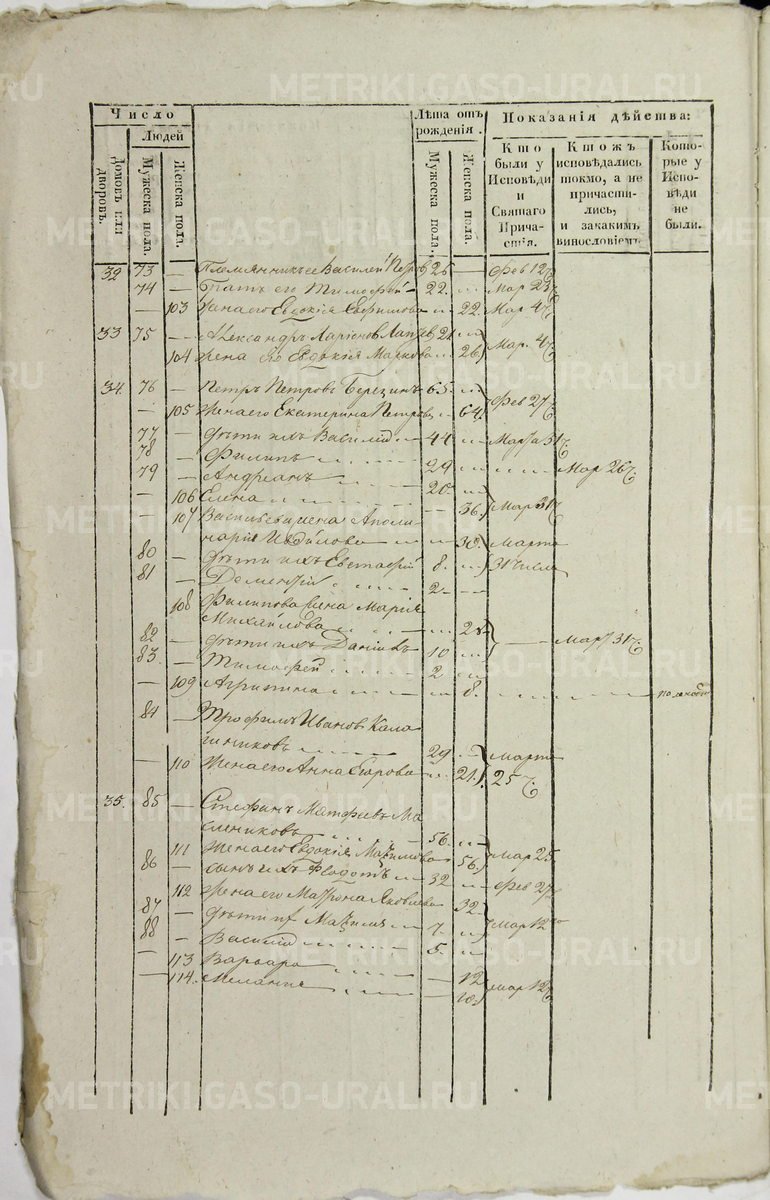 METRIKI.GASO-URAL.RU
Число
Людей
Домовъ или дворовъ.
Мужеска пола.
Женска пола.
Лѣта отъ рожденія.
Мужеска пола.
Женска пола.
Показанія дѣйства:
Кто были у Исповѣди и Святаго Причастія.
Ктожъ исповѣдались токмо, а не причастились, и закакимъ винословіемъ.
Которые у Исповѣди не были.
32 73 — Племянникъ ее Василей Петров 25 — Фев 12
74 — Братъ его Тимофей 22
— 103 Жена его Евдокія Евфимова 22 Мар 4
33 75 — Александръ Ларіонов 21
104 жена его Евдокія Маркова 26 Мар. 4
34. 76 — Петръ Петровъ Березинъ 65.
— 105 Жена его Екатерина Петров 64 Фев 27
77 — дѣти ихъ Василій 44 Марта 31
78 — Филипъ 29 Мар 26
79 — Андрианъ 20
— 106 Елена 36. Мар 31
— 107 Васильева жена Аполи
нарія 30. Марта
80 — дѣти ихъ Евстафій 8. 31 числа
81 — Дементій 2
108 Филипова жена Марія
Михайлова 28
82 — дѣти ихъ Даніилъ 10 Мар 31
83 — Тимофей 2
— 109 Агрипина 8.
84 — Трофимъ Иванов Кала
шниковъ 29 Марта
— 110 Жена его Анна Егорова 21. 25
35. 85 — Стефанъ Матфеевъ Ма
слениковъ 56.
111 Жена его Евдокія Маѯимова 56. Мар 25
86 — сынъ ихъ Федотъ 32 Фев 27
112 жена его Матрона Яковлева 32
87 — дѣти их Маѯимъ 7. Мар 12
88 — Василій 5.
— 113 Варвара 12
— 114. Меланія 10. Мар 12